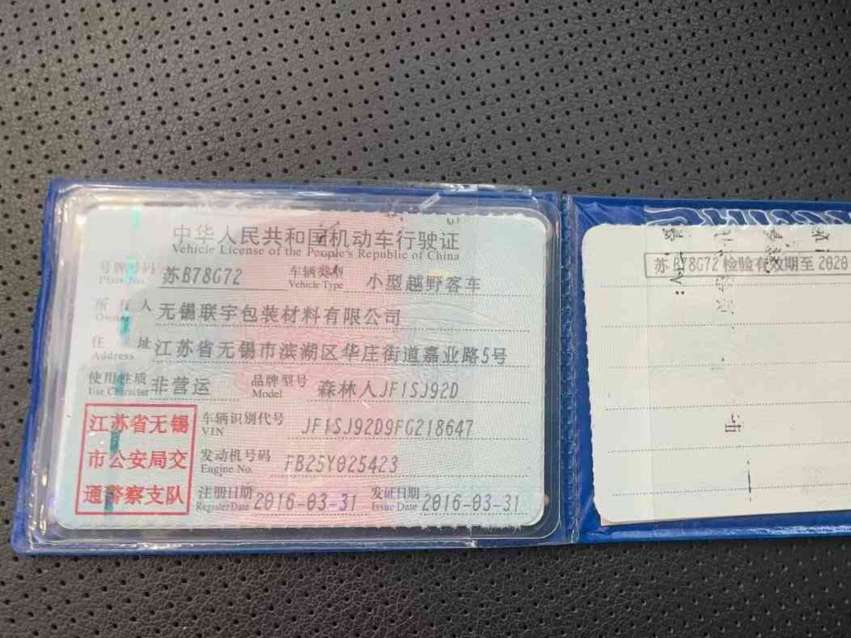 中华人民共和国机动车行驶证
Vehicle License of the People's Republic of China
号牌号码 苏B78G72 车辆类型 小型越野客车
Plate No. Vehicle Type
所有人 无锡联宇包装材料有限公司
Owner
住址 江苏省无锡市滨湖区华庄街道嘉业路5号
Address
使用性质 非营运 品牌型号 森林人JF1SJ92D
Use Character Model
江苏省无锡
市公安局交
通警察支队
车辆识别代号 JF1SJ92D9FG218647
VIN
发动机号码 FB25Y025423
Engine No.
注册日期 2016-03-31 发证日期 2016-03-31
Register Date Issue Date
苏B78G72 检验有效期至2020